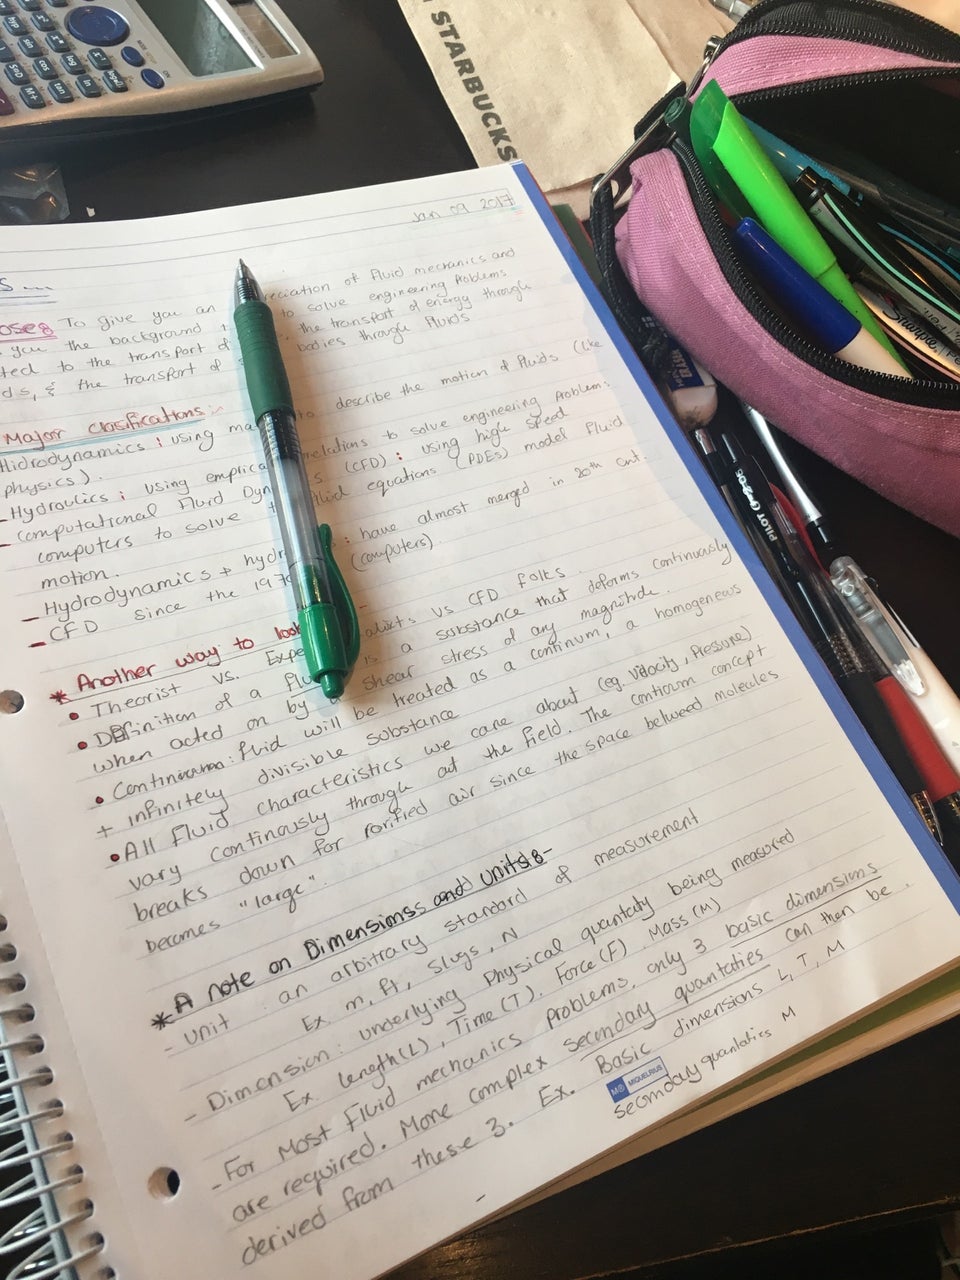 STARBUCKS
Jan 09 2017
To give you an reciation of Fluid mechanics and
you the background to solve engineering Problems
ted to the transport of the transport of energy through
ds, & the transport of bodies through Fluids
Major Clasifications:
Hidrodynamics: using ma to describe the motion of Fluids (like
physics).
- Hydraulics: using emplica relations to solve engineering Problems.
- Computational Fluid Dyn s (CFD): using high speed
computers to solve equations (PDEs) model Fluid
motion.
- Hydrodynamics + hydr : have almost merged in 20th cnt.
- CFD since the 197 (computers).
* Another way to look
• Theorist vs. Expe alists vs CFD folks.
• Definition of a Flu is a substance that deforms continuously
when acted on by a shear stress of any magnitude.
• Continuum: fluid will be treated as a continum, a homogeneous
+ infinitely divisible substance
• All Fluid characteristics we care about (eg. velocity, Pressure)
vary continously through out the Field. The contium concept
breaks down for rarified air since the space between molecules
becomes "large".
* A note on Dimensions and units:-
- unit : an arbitrary standard of measurement
Ex. m, ft, slugs, N
- Dimension: underlying Physical quantaty being measured
Ex. length(L), Time (T), Force(F), Mass (M)
- For Most Fluid mechanics problems, only 3 basic dimensions
are required. More complex secmday quantaties can then be
derived from these 3. Ex. Basic dimensions L, T, M
secmday quantatics M
MIQUELRIUS
PILOT G-2 05
Sharpie